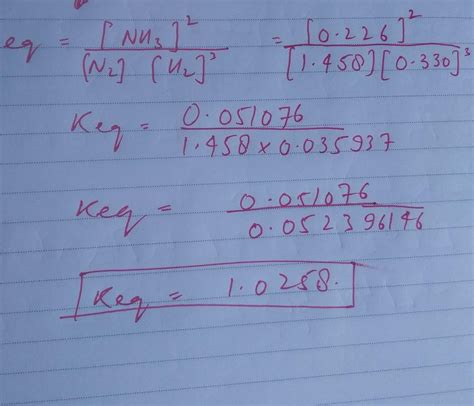 eq = [NH3]² / (N2] [H2]³ = [0.226]² / [1.458][0.330]³
Keq = 0.051076 / 1.458 x 0.035937
Keq = 0.051076 / 0.052396146
Keq = 1.0258.